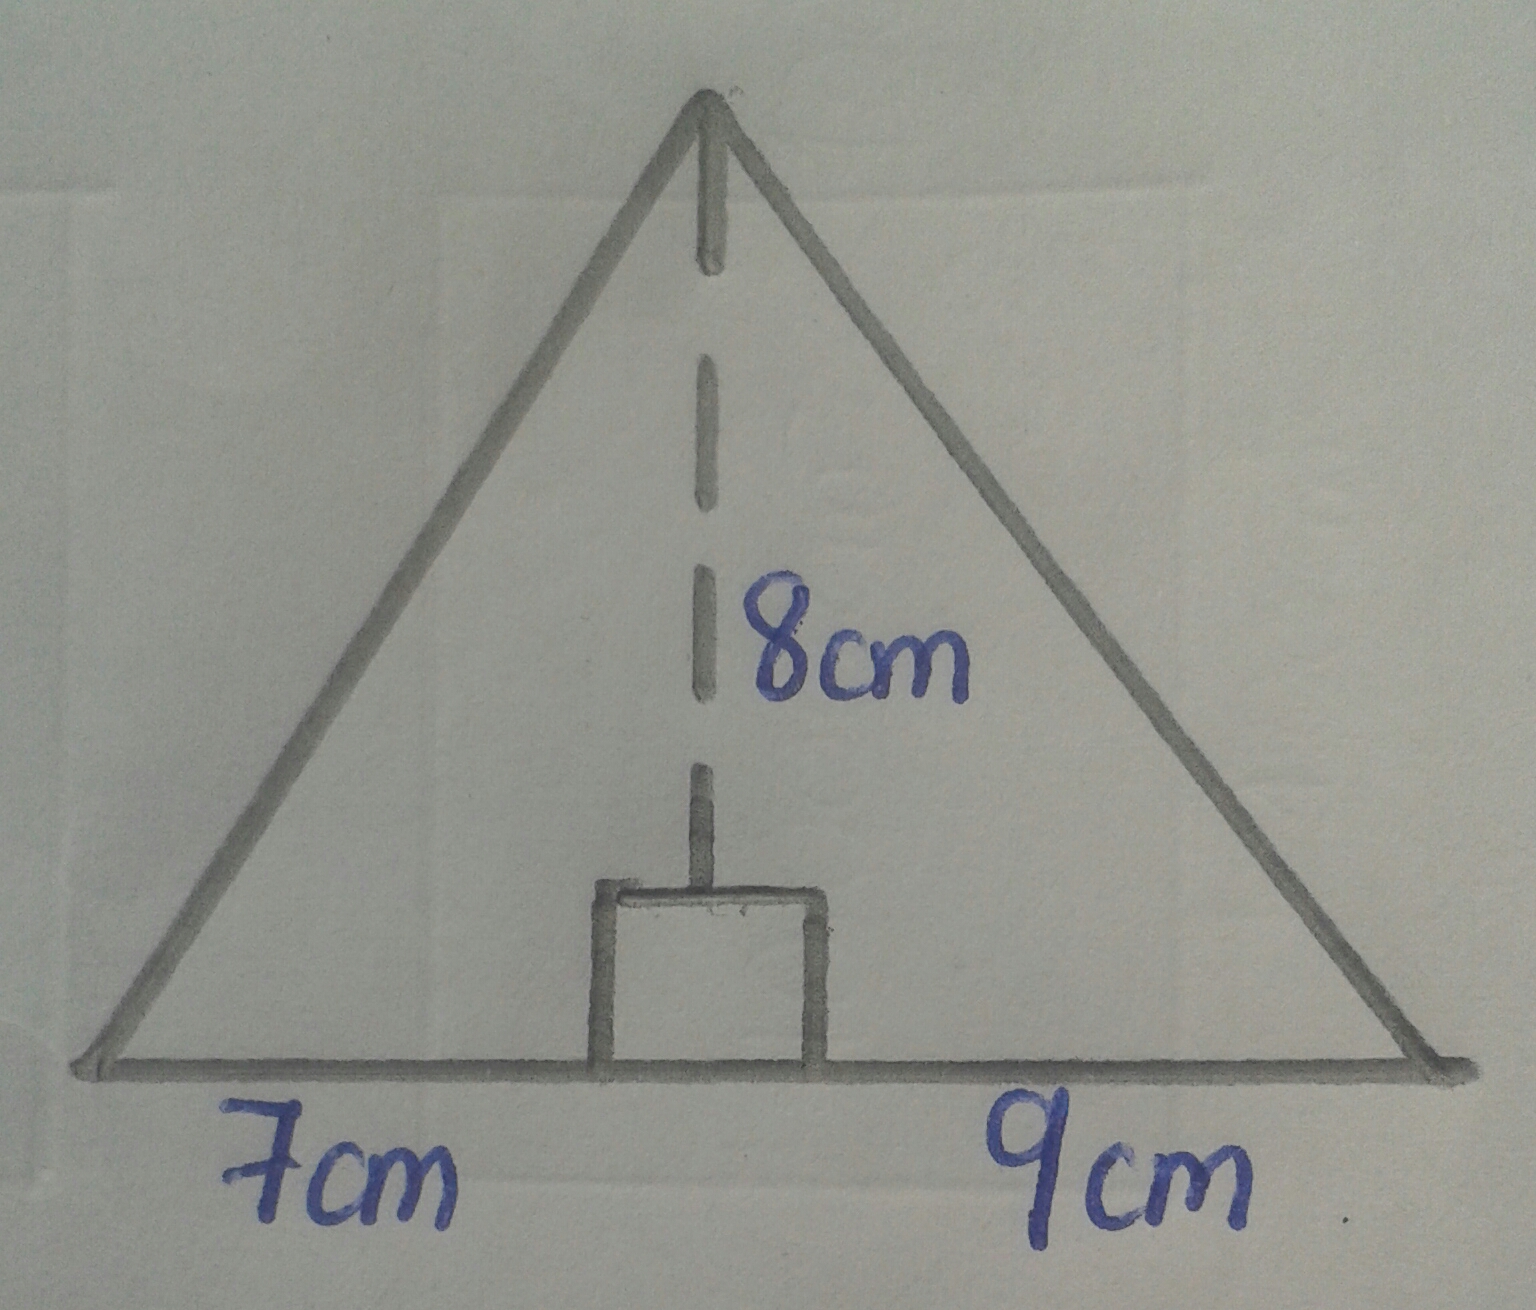 8cm
7cm 9cm